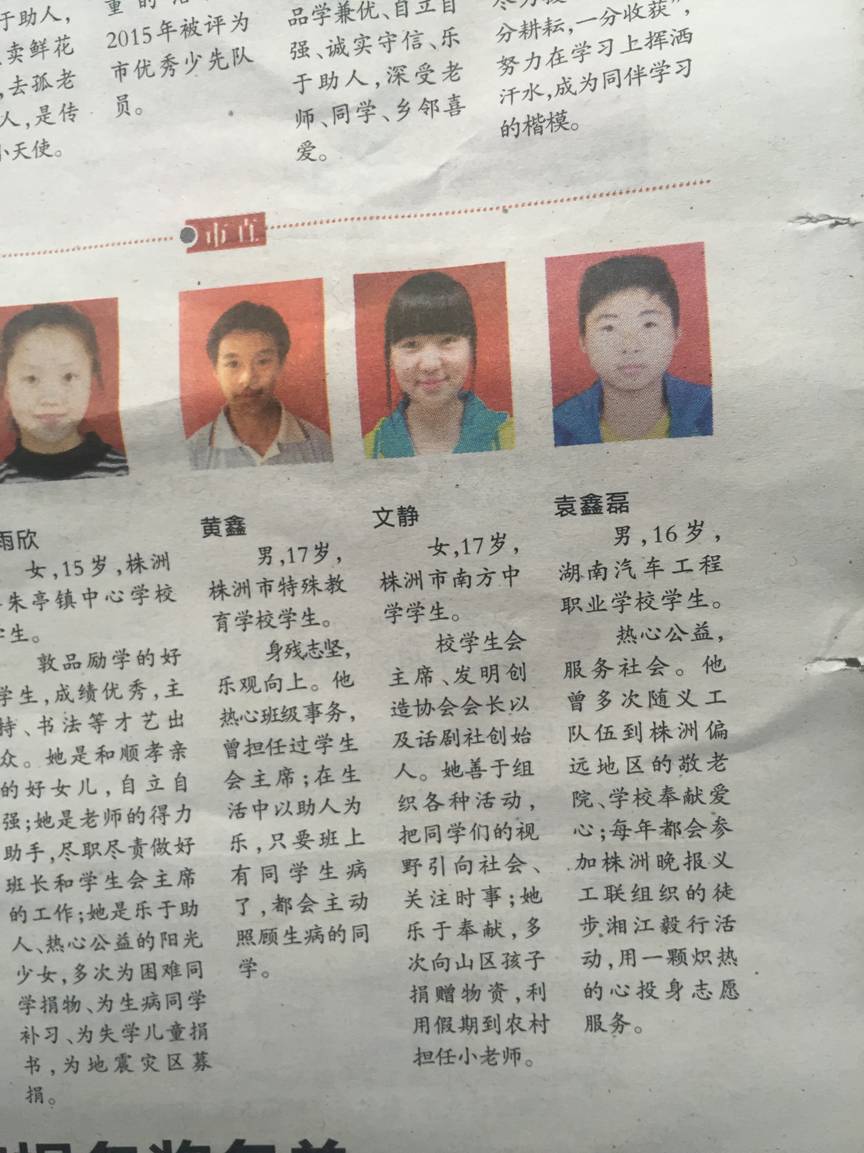 于助人,
卖鲜花
,去孤老
人,是传
小天使。
2015年被评为
市优秀少先队
员。
品学兼优、自立自
强、诚实守信、乐
于助人,深受老
师、同学、乡邻喜
爱。
分耕耘,一分收获”,
努力在学习上挥洒
汗水,成为同伴学习
的楷模。
市直
雨欣
女,15岁,株洲
朱亭镇中心学校
学生。
敦品励学的好
学生,成绩优秀,主
持、书法等才艺出
众。她是和顺孝亲
的好女儿,自立自
强;她是老师的得力
助手,尽职尽责做好
班长和学生会主席
的工作;她是乐于助
人、热心公益的阳光
少女,多次为困难同
学捐物、为生病同学
补习、为失学儿童捐
书,为地震灾区募
捐。
黄鑫
男,17岁,
株洲市特殊教
育学校学生。
身残志坚,
乐观向上。他
热心班级事务,
曾担任过学生
会主席;在生
活中以助人为
乐,只要班上
有同学生病
了,都会主动
照顾生病的同
学。
文静
女,17岁,
株洲市南方中
学学生。
校学生会
主席、发明创
造协会会长以
及话剧社创始
人。她善于组
织各种活动,
把同学们的视
野引向社会、
关注时事;她
乐于奉献,多
次向山区孩子
捐赠物资,利
用假期到农村
担任小老师。
袁鑫磊
男,16岁,
湖南汽车工程
职业学校学生。
热心公益,
服务社会。他
曾多次随义工
队伍到株洲偏
远地区的敬老
院、学校奉献爱
心;每年都会参
加株洲晚报义
工联组织的徒
步湘江毅行活
动,用一颗炽热
的心投身志愿
服务。